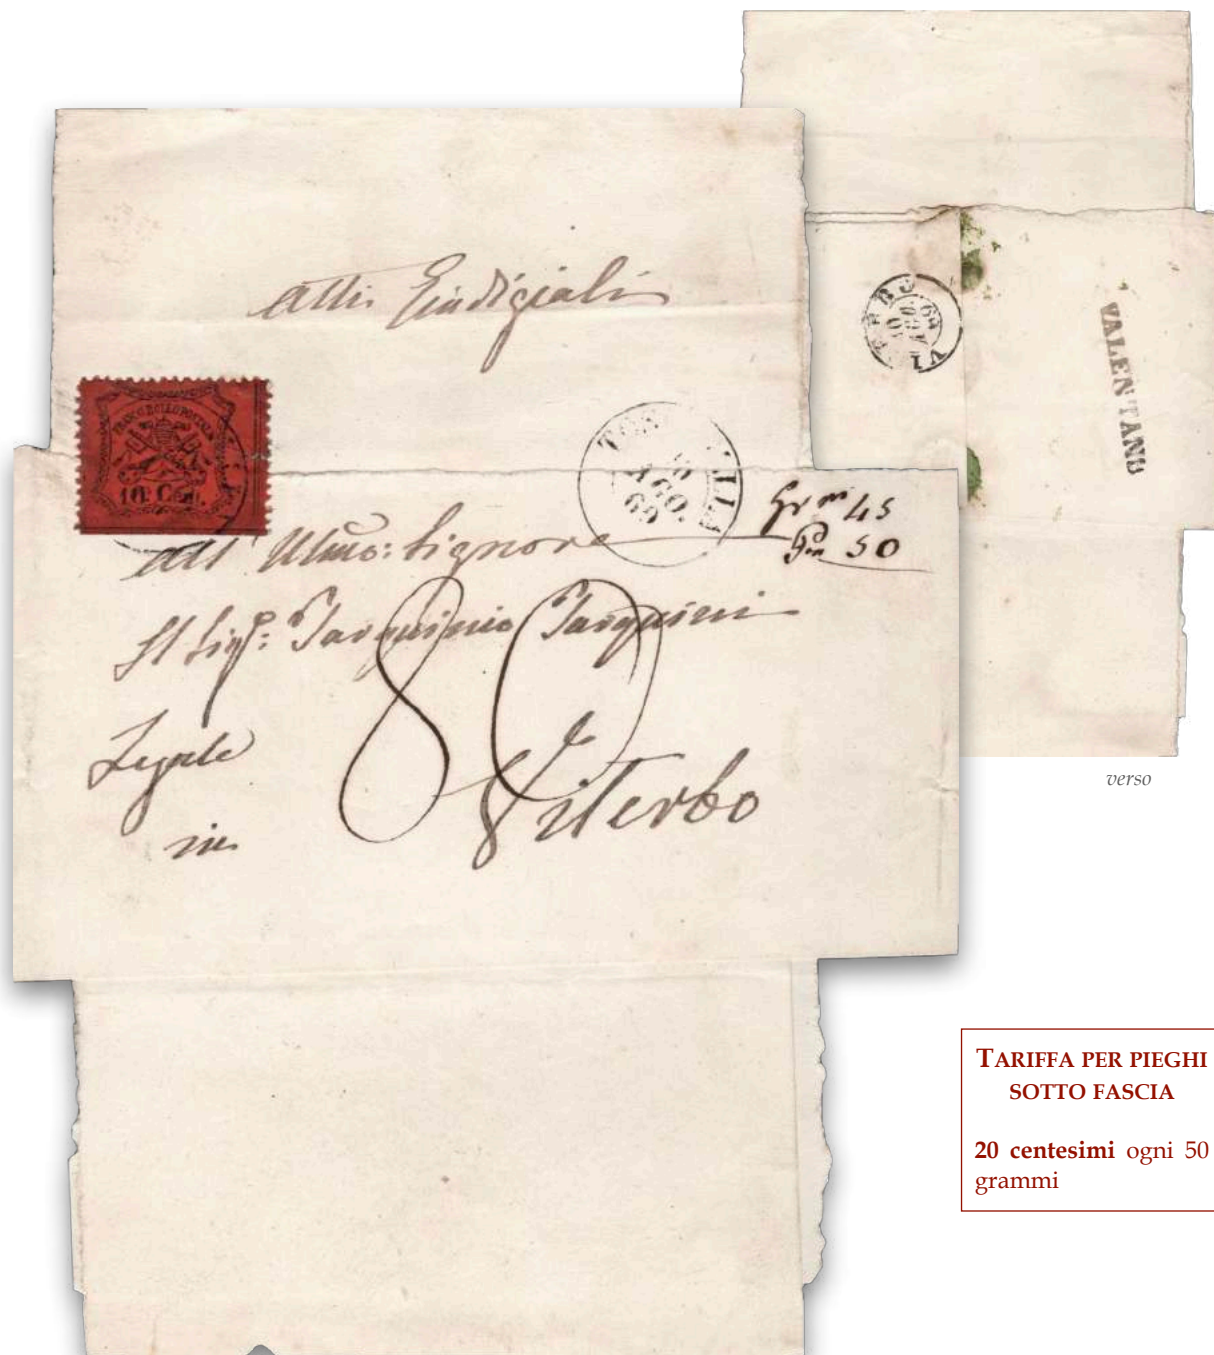 Atti Giudiziali
FRANCO BOLLO POSTALE
10 Cent.
AGO.
69
Grmi 45
50
All' Illmo: Signore
Il Sigr: Tarquinio Tarquini
80
Legale
in Viterbo
VITERBO
10
AGO
69
VALENTANO
verso
TARIFFA PER PIEGHI
SOTTO FASCIA
20 centesimi ogni 50
grammi